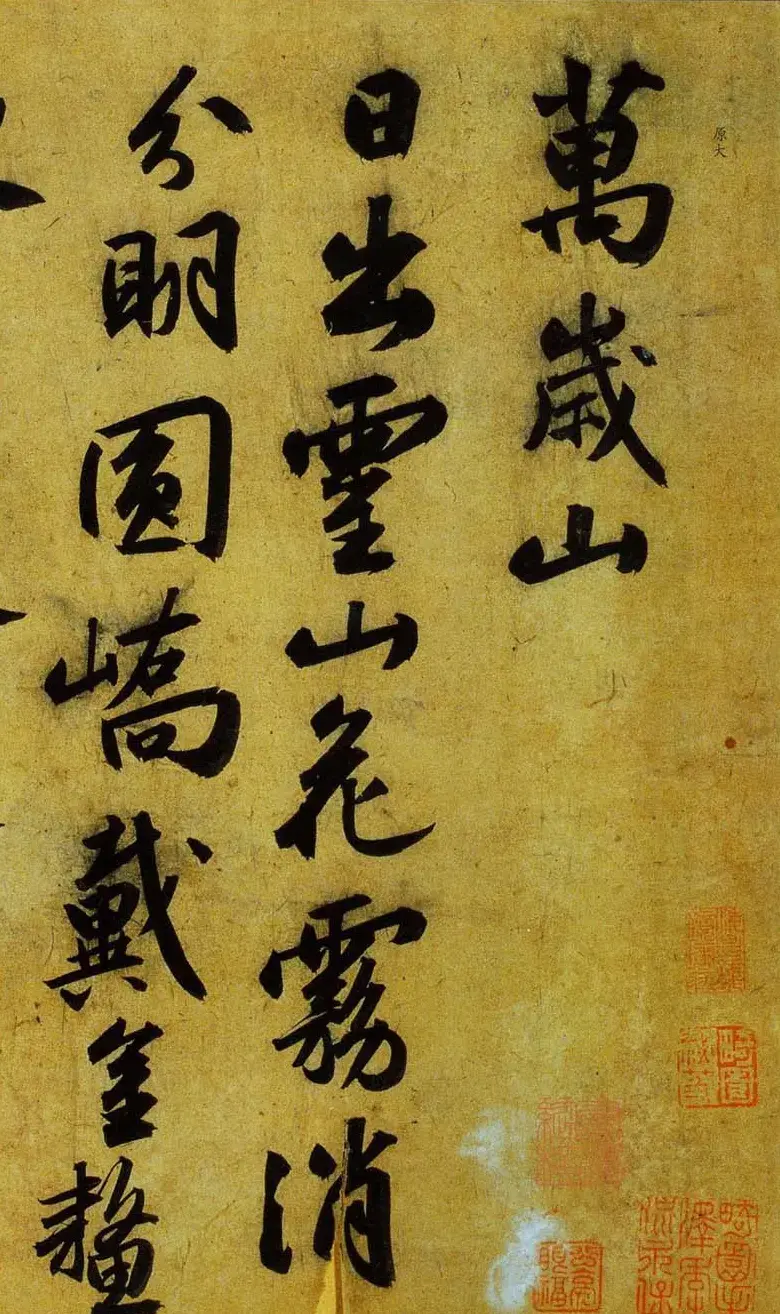 原大
萬歲山
日出靈山花霧消
分明圓嶠戴金鰲